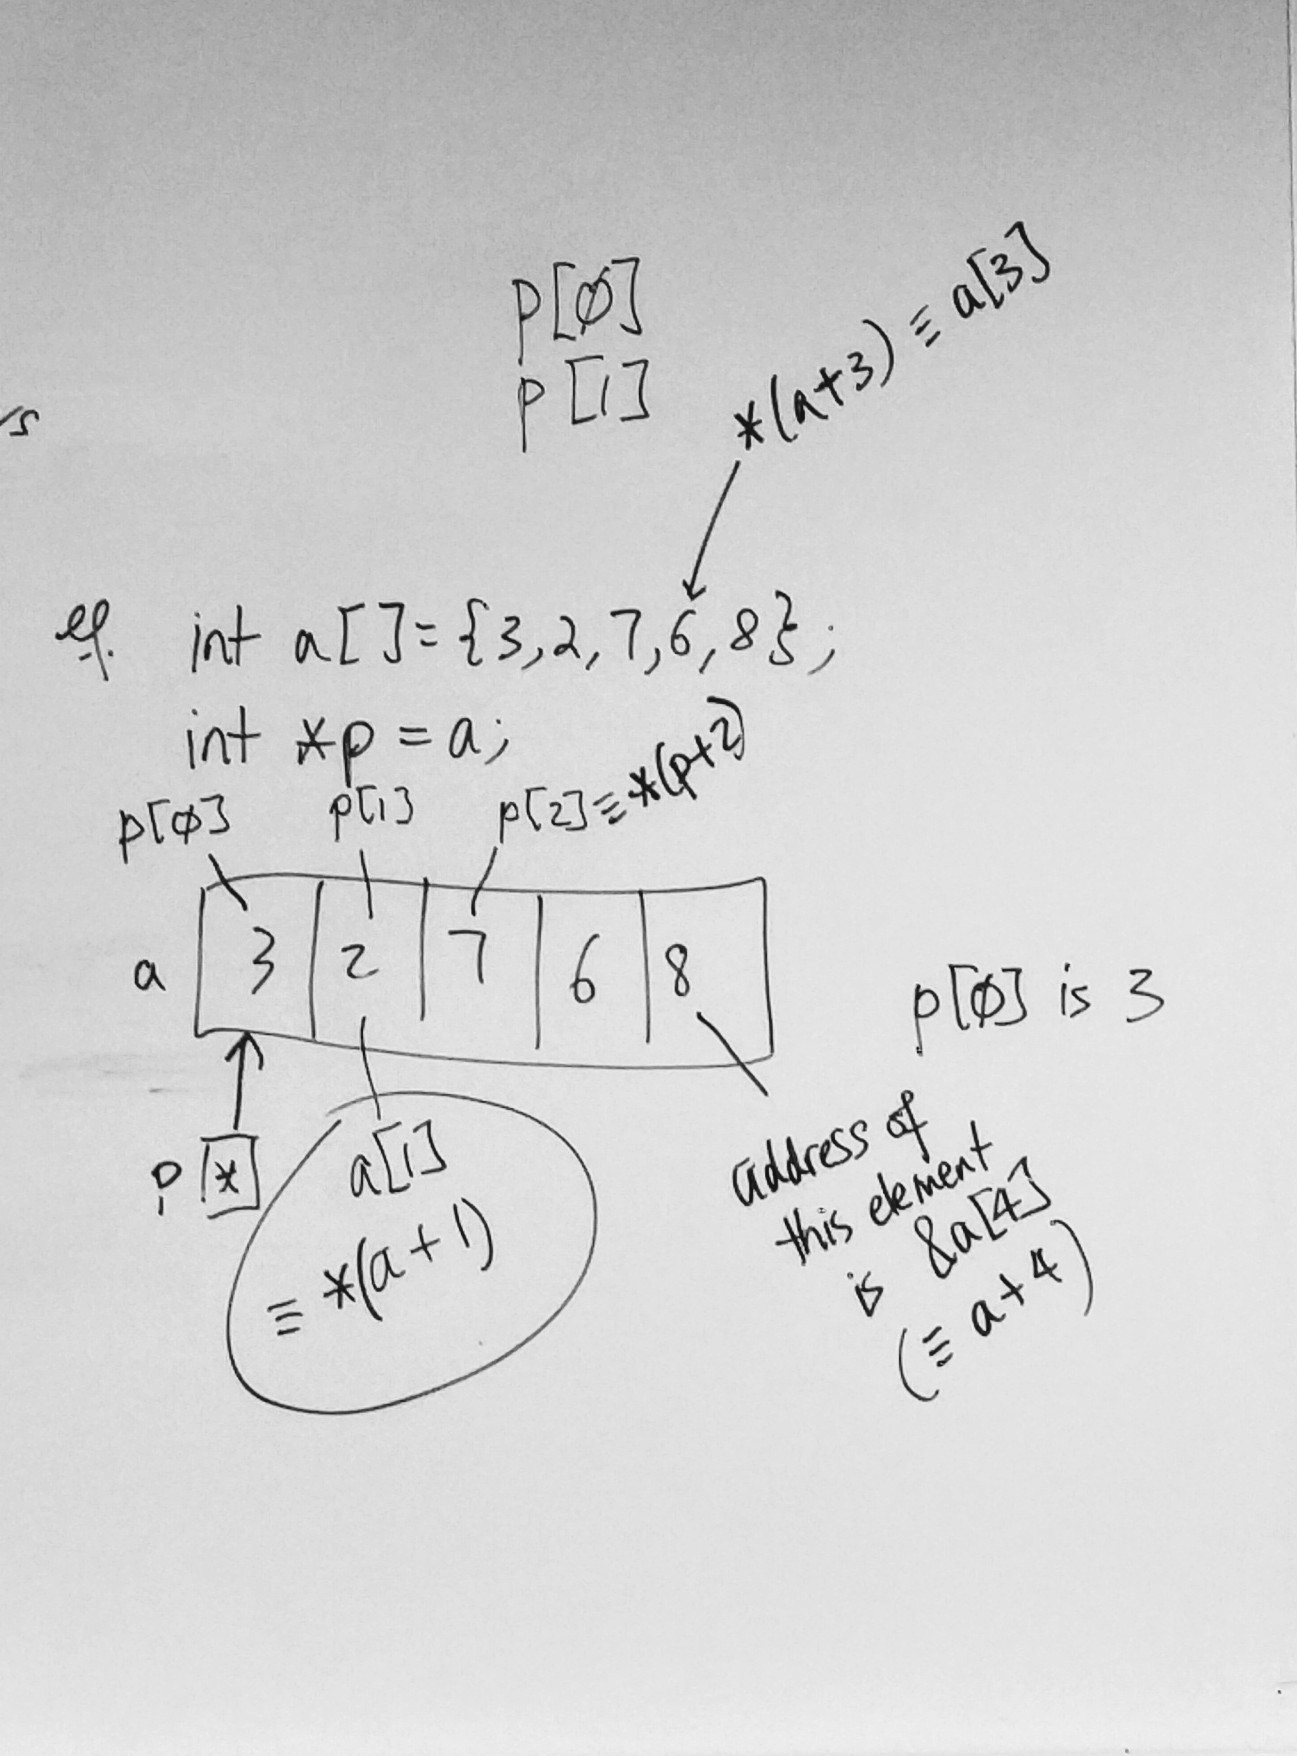 p[∅]
p[1]
*(a+3) ≡ a[3]
rs
eg. int a[]={3,2,7,6,8};
int *p = a;
p[∅] p[1] p[2]≡*(p+2)
a 3 2 7 6 8
p[∅] is 3
p *
a[1]
≡ *(a+1)
address of
this element
is &a[4]
(≡ a+4)